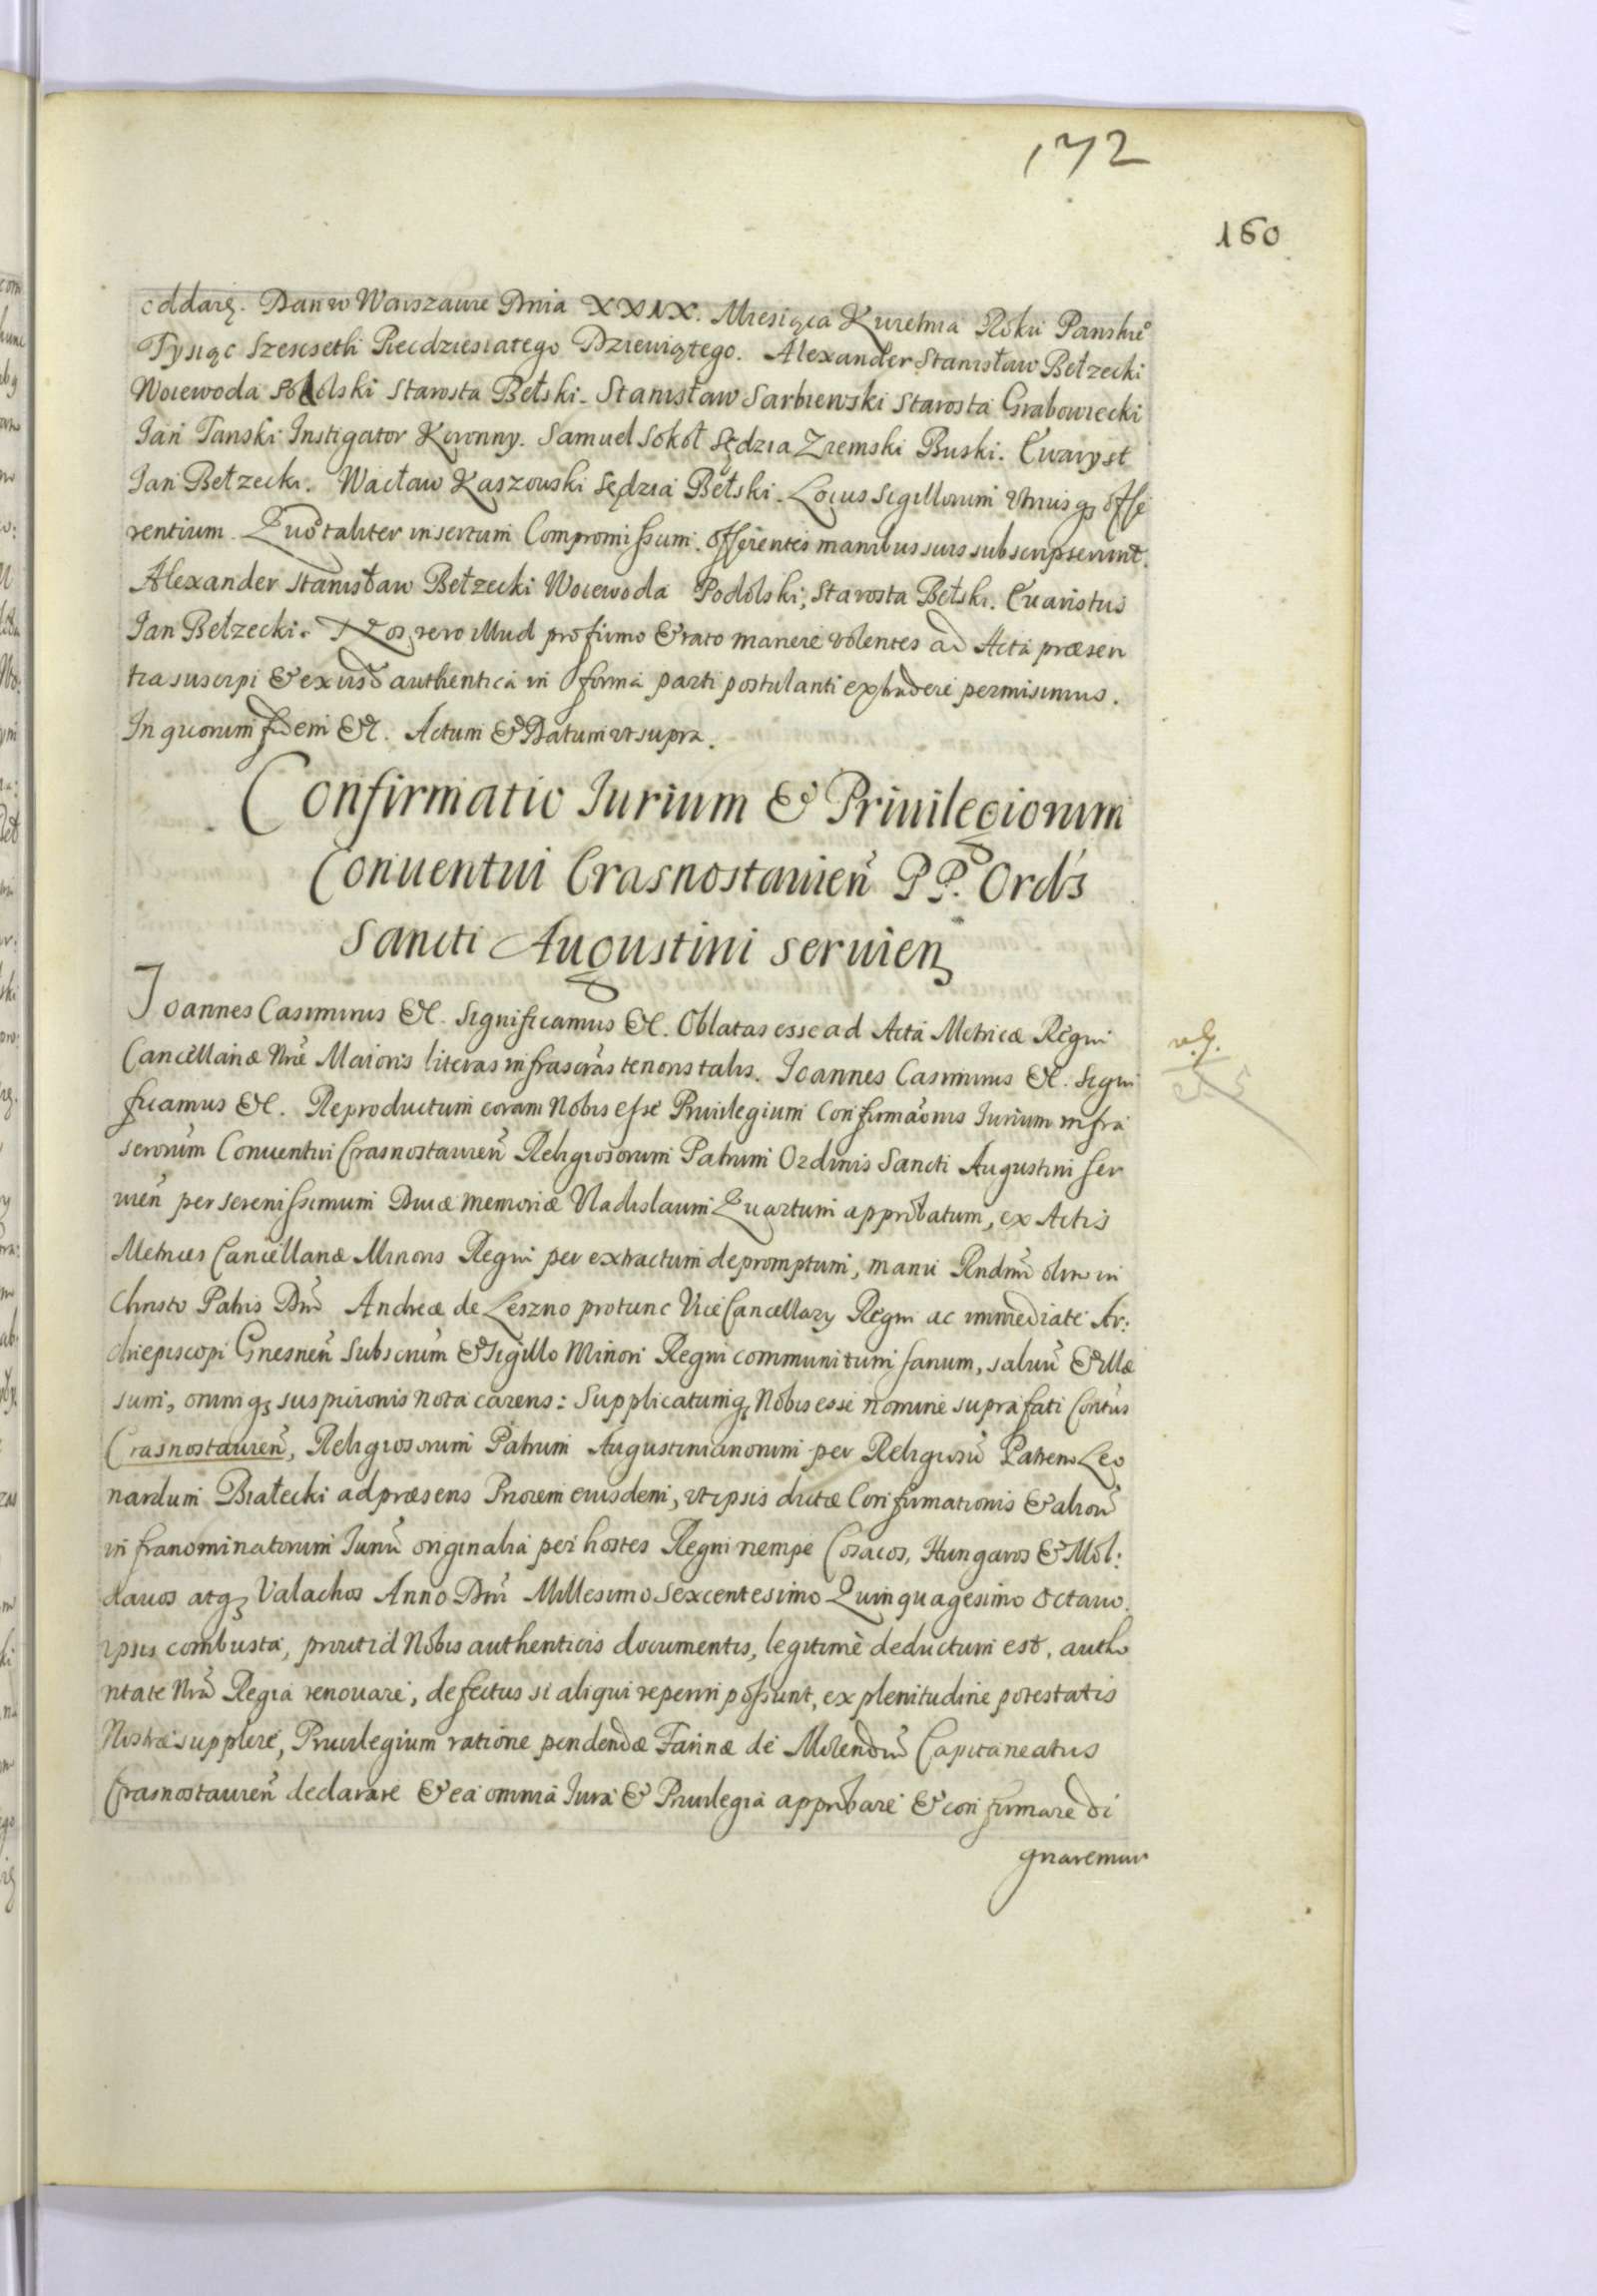 172
160
oddarę. Dan w Warszawie Dnia XXIX. Miesiąca Kwietnia Roku Panskiº
Tysiąc Szescseth Piecdziesiatego Dziewiątego. Alexander Stanisław Bełzecki
Woiewoda Podolski Starosta Bełski. Stanisław Sarbiewski Starosta Grabowiecki
Jan Tanski Instigator Koronny. Samuel Sokoł Sędzia Ziemski Buski. Ewaryst
Jan Bełzecki. Wacław Kaszowski Sędzia Bełski. Locus Sigillorum Vtriusqȝ Offe
rentium. Quo taliter insertum Compromissum. Offerentes manibus suis subscripserunt.
Alexander Stanisław Bełzecki Woiewoda Podolski, Starosta Bełski. Evaristus
Jan Bełzecki. Nos vero illud pro firmo & rato manere volentes ad Acta præsen
tia suscipi & ex iisd authentica in forma parti postulanti extradere permisimus.
In quorum fidem &c. Actum & Datum vt supra.
Confirmatio Iurium & Priuilegiorum
Conuentui Crasnostauien̄ PP. Ordīs
Sancti Augustini seruien
Joannes Casimirus &c. Significamus &c. Oblatas esse ad Acta Metricæ Regni
Cancellariæ Nræ Maioris literas infrascrās tenoris talis. Joannes Casimirus &c. Signi
ficamus &c. Reproductum coram Nobis esse Priuilegium Confirmaōnis Iurium infra
scrorūm Conuentui Crasnostauien̄ Religiosorum Patrum Ordinis Sancti Augustini ser
uien̄ per Serenissimum Diuæ memoriæ Vladislaum Quartum approbatum, ex Actis
Metrices Cancellariæ Minoris Regni per extractum depromptum, manu Rndmī olim in
Christo Patris Dnī Andreæ de Leszno protunc Vice Cancellarÿ Regni ac immediate Ar:
chiepiscopi Gnesnen̄ Subscrūm & Sigillo Minori Regni communitum sanum, saluū & illæ
sum, omniqȝ suspicionis nota carens: Supplicatumqȝ Nobis esse nomine supra fati Contūs
Crasnostauien̄, Religiosorum Patrum Augustinianorum per Religiosū Patrem Leo
nardum Białecki ad præsens Priorem eiusdem, vt ipsis dictæ Confirmationis & aliorū
infranominatorum Iuriū originalia per hostes Regni nempe Cosacos, Hungaros & Mol:
dauos atqȝ Valachos Anno Dnī Millesimo Sexcentesimo Quinquagesimo Octauo.
ipsis combusta, prout id Nobis authenticis documentis, legitimè deductum est, autho
ritate Nrā Regia renouare, defectus si aliqui reperiri possunt, ex plenitudine potestatis
Nostræ supplere, Priuilegium ratione pendendæ Farinæ de Molendīs Capitaneatus
Crasnostauien̄ declarare & ea omnia Iura & Priuilegia approbare & confirmare di
gnaremur